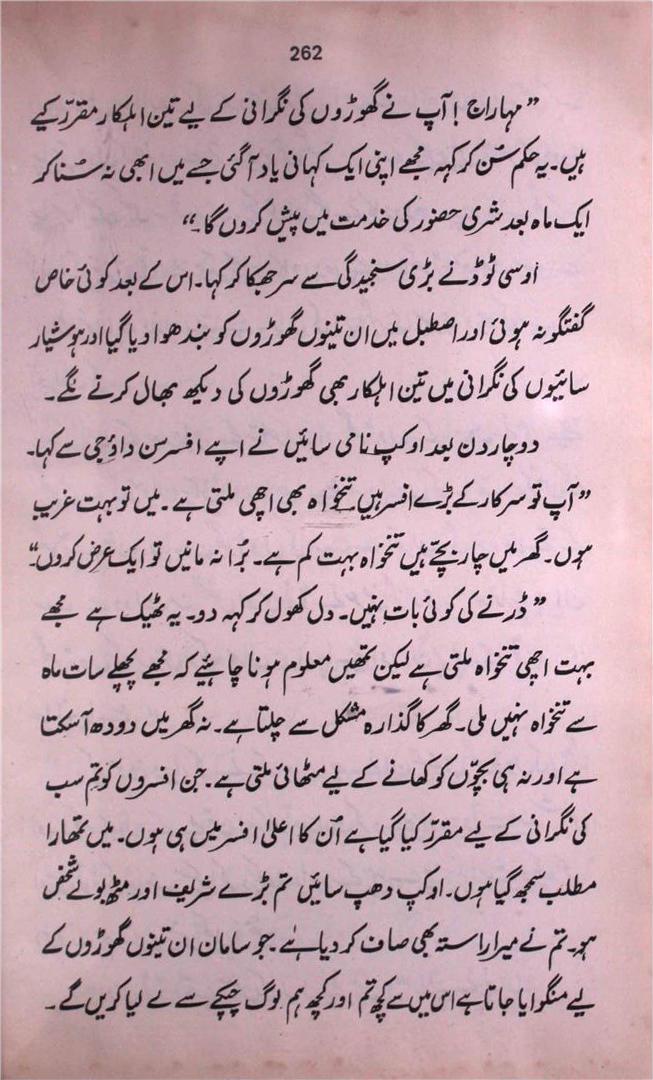 262
”مہاراج! آپ نے گھوڑوں کی نگرانی کے لیے تین اہلکار مقرّر کیے
ہیں۔ یہ حکم سُن کر کہہ مجھے اپنی ایک کہانی یاد آ گئی جسے میں ابھی نہ سُنا کر
ایک ماہ بعد شری حضور کی خدمت میں پیش کروں گا۔“
اوسی ٹوڈ نے بڑی سنجیدگی سے سر جھکا کر کہا۔ اس کے بعد کوئی خاص
گفتگو نہ ہوئی اور اصطبل میں ان تینوں گھوڑوں کو بندھوا دیا گیا اور ہوشیار
سائیوں کی نگرانی میں تین اہلکار بھی گھوڑوں کی دیکھ بھال کرنے لگے۔
دو چار دن بعد اوکپ نامی سائیں نے اپنے افسر سن داؤجی سے کہا۔
”آپ تو سرکار کے بڑے افسر ہیں۔ تنخواہ بھی اچھی ملتی ہے۔ میں تو بہت غریب
ہوں۔ گھر میں چار بچّے ہیں تنخواہ بہت کم ہے۔ بُرا نہ مانیں تو ایک عرض کروں“
”ڈرنے کی کوئی بات نہیں۔ دل کھول کر کہہ دو۔ یہ ٹھیک ہے مجھے
بہت اچھی تنخواہ ملتی ہے لیکن تمھیں معلوم ہونا چاہئیے کہ مجھے پچھلے سات ماہ
سے تنخواہ نہیں ملی۔ گھر کا گذارہ مشکل سے چلتا ہے۔ نہ گھر میں دودھ آ سکتا
ہے اور نہ ہی بچّوں کو کھانے کے لیے مٹھائی ملتی ہے۔ جن افسروں کو تم سب
کی نگرانی کے لیے مقرّر کیا گیا ہے اُن کا اعلیٰ افسر میں ہی ہوں۔ میں تمھارا
مطلب سمجھ گیا ہوں۔ اوکپ دھپ سائیں تم بڑے شریف اور مٹھ بولے شخص
ہو۔ تم نے میرا راستہ بھی صاف کر دیا ہے۔ جو سامان ان تینوں گھوڑوں کے
لیے منگوایا جاتا ہے اس میں سے کچھ تم اور کچھ ہم لوگ چپکے سے لے لیا کریں گے۔